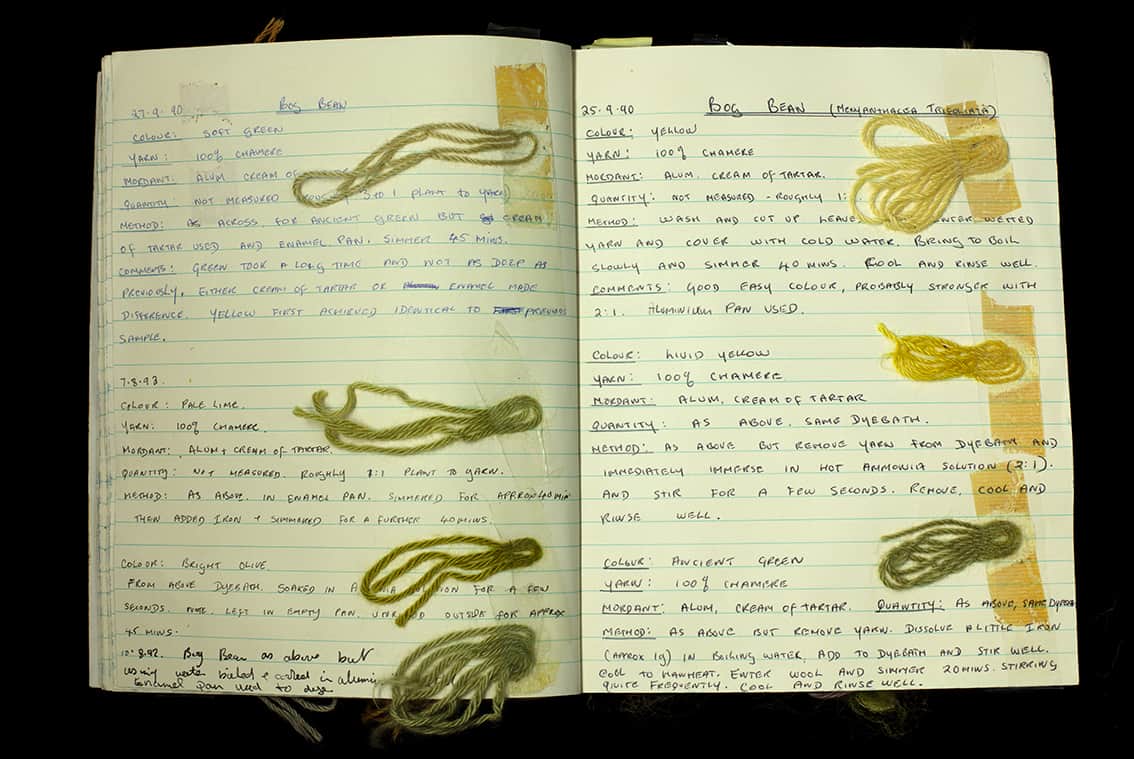 27·9·90 Bog Bean
COLOUR: SOFT GREEN
YARN: 100% CHAMERE
MORDANT: ALUM, CREAM OF
QUANTITY: NOT MEASURED 3 TO 1 PLANT TO YARN
METHOD: AS ACROSS FOR ANCIENT GREEN BUT CREAM
OF TARTAR USED AND ENAMEL PAN. SIMMER 45 MINS.
COMMENTS: GREEN TOOK A LONG TIME AND NOT AS DEEP AS
PREVIOUSLY, EITHER CREAM OF TARTAR OR ENAMEL MADE
DIFFERENCE. YELLOW FIRST ACHIEVED IDENTICAL TO PREVIOUS
SAMPLE.
COLOUR: PALE LIME.
YARN: 100% CHAMERE.
MORDANT: ALUM + CREAM OF TARTAR.
QUANTITY: NOT MEASURED. ROUGHLY PLANT TO YARN.
METHOD: AS ABOVE. IN ENAMEL PAN. SIMMERED FOR APPROX 40 MIN
THEN ADDED IRON + SIMMERED FOR A FURTHER 40 MINS.
COLOUR: BRIGHT OLIVE.
FROM ABOVE DYEBATH. SOAKED IN FOR A FEW
SECONDS. LEFT IN EMPTY PAN, OUTSIDE FOR APPROX
45 MINS.
Bog Bean as above but
using water boiled + cooled in
Enamel Pan used to dye
25·9·90 BOG BEAN (MENYANTHACEA TRIFOLIATA)
COLOUR: YELLOW
YARN: 100% CHAMERE
MORDANT: ALUM, CREAM OF TARTAR.
QUANTITY: NOT MEASURED - ROUGHLY 1:
METHOD: WASH AND CUT UP WETTED
YARN AND COVER WITH COLD WATER. BRING TO BOIL
SLOWLY AND SIMMER 40 MINS. COOL AND RINSE WELL.
COMMENTS: GOOD EASY COLOUR, PROBABLY STRONGER WITH
2:1. ALUMINIUM PAN USED.
COLOUR: LIVID YELLOW
YARN: 100% CHAMERE
MORDANT: ALUM, CREAM OF TARTAR
QUANTITY: AS ABOVE, SAME DYEBATH.
METHOD: AS ABOVE BUT REMOVE YARN FROM DYEBATH AND
IMMEDIATELY IMMERSE IN HOT AMMONIA SOLUTION (2:1).
AND STIR FOR A FEW SECONDS. REMOVE, COOL AND
RINSE WELL.
COLOUR: ANCIENT GREEN
YARN: 100% CHAMERE
MORDANT: ALUM, CREAM OF TARTAR. QUANTITY: AS ABOVE, SAME
METHOD: AS ABOVE BUT REMOVE YARN. DISSOLVE A LITTLE IRON
(APPROX 1g) IN BOILING WATER, ADD TO DYEBATH AND STIR WELL.
COOL TO HANDHEAT. ENTER WOOL AND SIMMER 20 MINS. STIRRING
QUITE FREQUENTLY. COOL AND RINSE WELL.